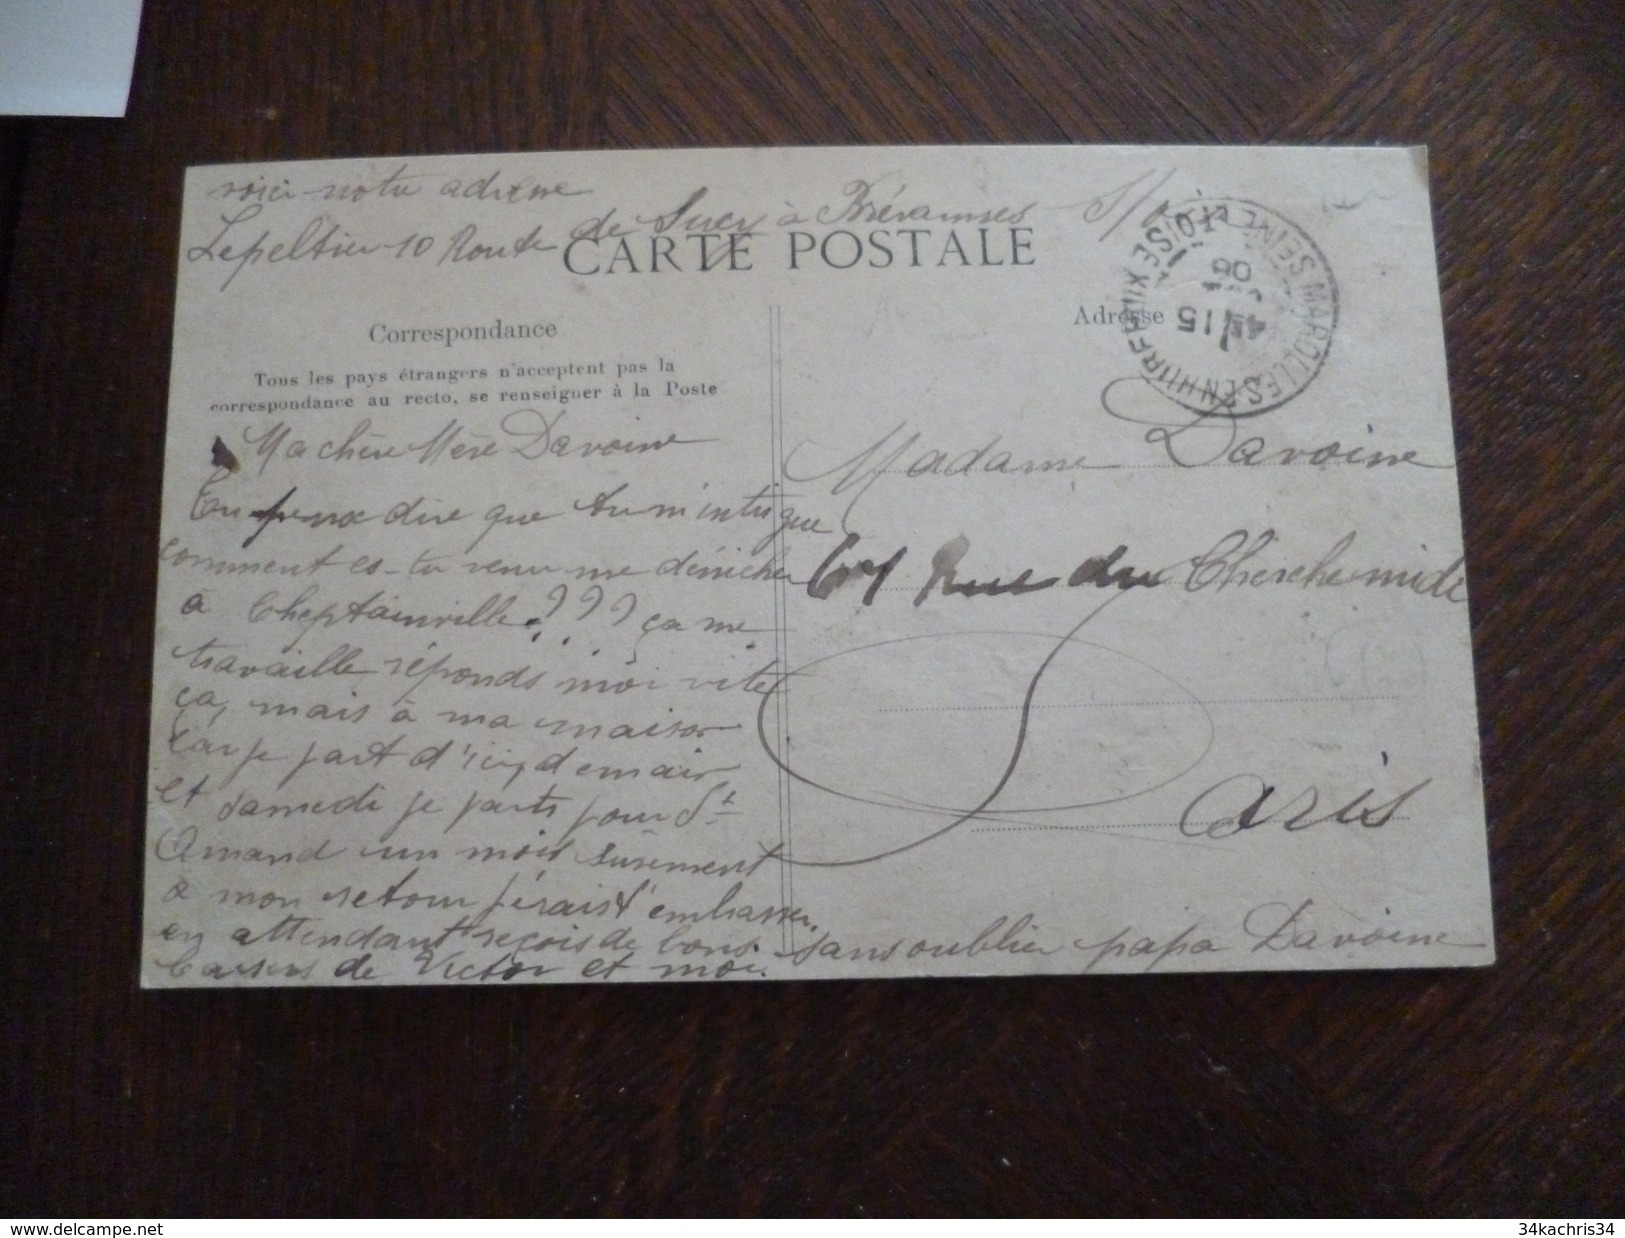 voici notre adresse
Lepeltier 10 Route de Sucy à Brévannes S/O
CARTE POSTALE
Correspondance
Tous les pays étrangers n'acceptent pas la
correspondance au recto, se renseigner à la Poste
Ma chère Mère Davoine
Tu peux dire que tu m'intrigue
comment es-tu venu me dénicher
à Cheptainville??? ça me
travaille réponds moi vite
ça, mais à ma maison
car je part d'ici, demain
et samedi je parts pour St
Amand un mois surement
à mon retour j'irais t'embrasser,
en attendant reçois de bons
baisers de Victor et moi.
sans oublier papa Davoine
Adresse
MAROLLES-EN-HUREPOIX SEINE ET OISE
15
08
Madame Davoine
61 Rue du Cherche midi
Paris
delcampe.net
34kachris34